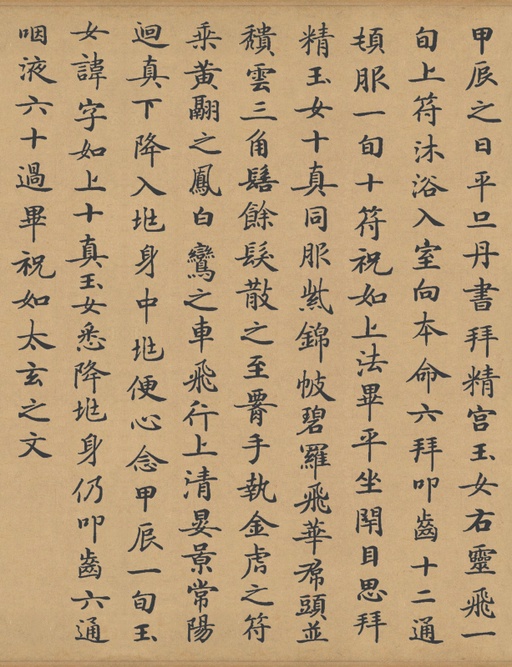 甲辰之日平旦丹書拜精宮玉女右靈飛一
旬上符沐浴入室向本命六拜叩齒十二通
頓服一旬十符祝如上法畢平坐閇目思拜
精玉女十真同服紫錦帔碧羅飛華帬頭並
穨雲三角髻餘髮散之至署手執金虎之符
乘黃翮之鳳白鸞之車飛行上清晏景常陽
迴真下降入𡉻身中𡉻便心念甲辰一旬玉
女諱字如上十真玉女悉降𡉻身仍叩齒六通
咽液六十過畢祝如太玄之文